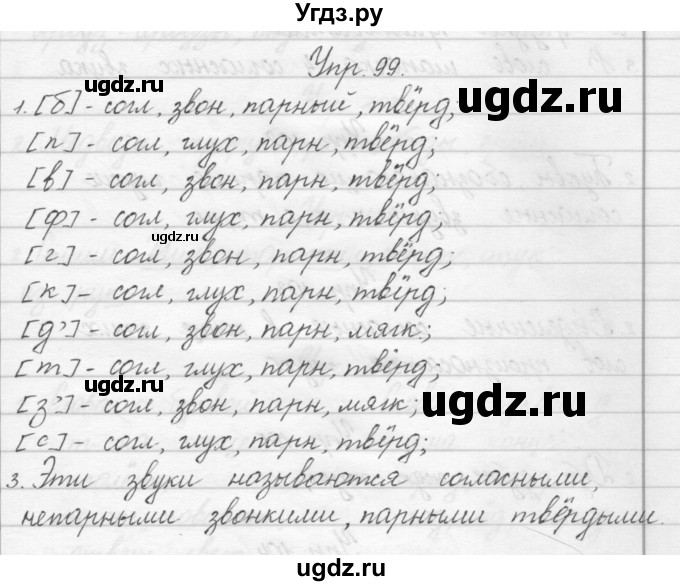 Угдз.ру
Упр. 99.
1. [б] - согл, звон, парный, твёрд;
ugdz.ru
[п] - согл, глух, парн, твёрд;
[в] - согл, звон, парн, твёрд;
[ф] - согл, глух, парн, твёрд;
[г] - согл, звон, парн, твёрд;
[к] - согл, глух, парн, твёрд;
[д'] - согл, звон, парн, мягк;
[т] - согл, глух, парн, твёрд;
[з'] - согл, звон, парн, мягк;
ugdz.ru
[с] - согл, глух, парн, твёрд;
3. Эти звуки называются соласными,
непарными звонкими, парными твёрдыми.
ugdz.ru
ugdz.ru
ugdz.ru
ugdz.ru